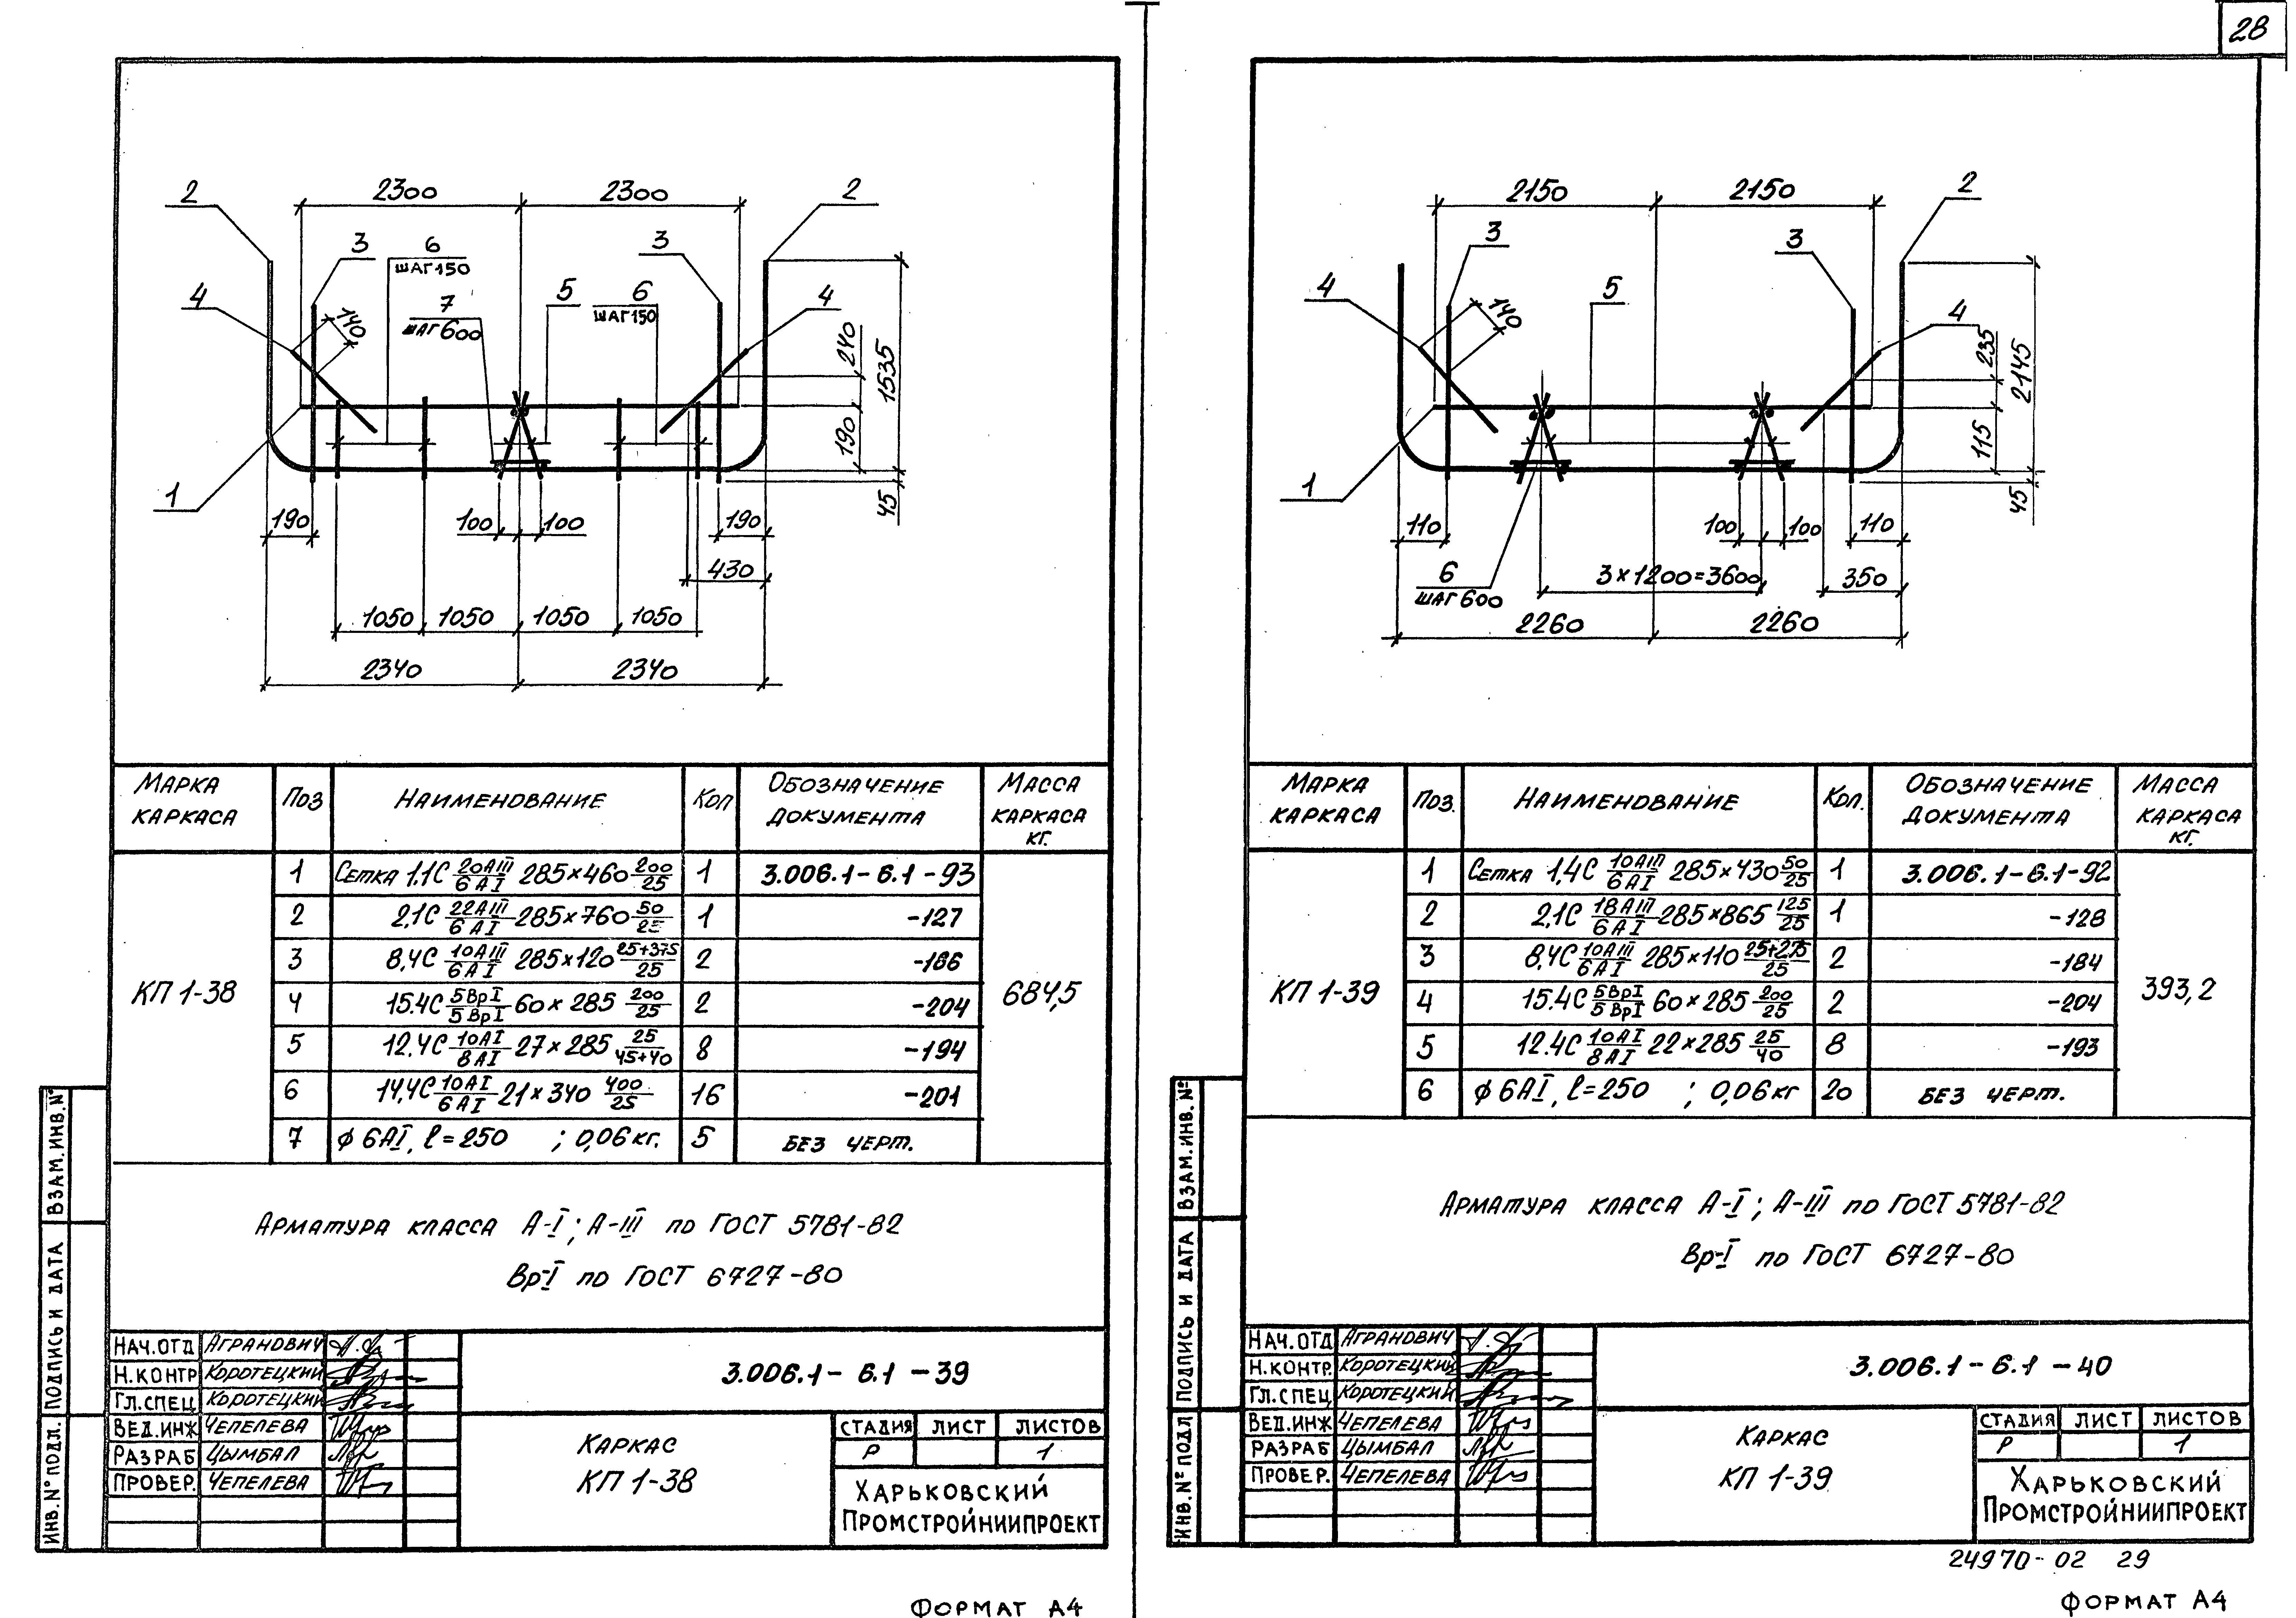 28
2300 2300
2 2
3 6 ШАГ 150 3
4 140 7 ШАГ 600 5 6 ШАГ 150 4
240 1535
190
1
45
190 100 100 190
430
1050 1050 1050 1050
2340 2340
МАРКА КАРКАСА ПОЗ НАИМЕНОВАНИЕ КОЛ ОБОЗНАЧЕНИЕ ДОКУМЕНТА МАССА КАРКАСА КГ.
КП 1-38 684,5
1 СЕТКА 1.1С 20АIII/6АI 285×460 200/25 1 3.006.1-6.1-93
2 2,1С 22АIII/6АI 285×760 50/25 1 -127
3 8,4С 10АIII/6АI 285×120 25+375/25 2 -186
4 15.4С 5ВрI/5ВрI 60×285 200/25 2 -204
5 12.4С 10АI/8АI 27×285 25/45+40 8 -194
6 14,4С 10АI/6АI 21×340 400/25 16 -201
7 ф6АI, ℓ=250 ; 0,06кг. 5 БЕЗ ЧЕРТ.
АРМАТУРА КЛАССА А-I; А-III ПО ГОСТ 5781-82
Вр-I ПО ГОСТ 6727-80
НАЧ.ОТД АГРАНОВИЧ
Н.КОНТР КОРОТЕЦКИЙ
ГЛ.СПЕЦ КОРОТЕЦКИЙ
ВЕД.ИНЖ ЧЕПЕЛЕВА
РАЗРАБ ЦЫМБАЛ
ПРОВЕР. ЧЕПЕЛЕВА
3.006.1-6.1-39
КАРКАС
КП 1-38
СТАДИЯ ЛИСТ ЛИСТОВ
Р 1
ХАРЬКОВСКИЙ
ПРОМСТРОЙНИИПРОЕКТ
ИНВ.№ ПОДЛ. ПОДПИСЬ И ДАТА ВЗАМ.ИНВ.№
ФОРМАТ А4
2150 2150
2
3 3
4 140 5 4
235 2145
115
1
45
110 100 100 110
6 ШАГ 600 3×1200=3600 350
2260 2260
МАРКА КАРКАСА ПОЗ. НАИМЕНОВАНИЕ КОЛ. ОБОЗНАЧЕНИЕ ДОКУМЕНТА МАССА КАРКАСА КГ.
КП 1-39 393,2
1 СЕТКА 1,4С 10АIII/6АI 285×430 50/25 1 3.006.1-6.1-92
2 2,1С 18АIII/6АI 285×865 125/25 1 -128
3 8,4С 10АIII/6АI 285×110 25+275/25 2 -184
4 15.4С 5ВрI/5ВрI 60×285 200/25 2 -204
5 12.4С 10АI/8АI 22×285 25/40 8 -193
6 ф6АI, ℓ=250 ; 0,06кг 20 БЕЗ ЧЕРТ.
АРМАТУРА КЛАССА А-I; А-III ПО ГОСТ 5781-82
Вр-I ПО ГОСТ 6727-80
НАЧ.ОТД АГРАНОВИЧ
Н.КОНТР. КОРОТЕЦКИЙ
ГЛ.СПЕЦ КОРОТЕЦКИЙ
ВЕД.ИНЖ ЧЕПЕЛЕВА
РАЗРАБ ЦЫМБАЛ
ПРОВЕР. ЧЕПЕЛЕВА
3.006.1-6.1-40
КАРКАС
КП 1-39
СТАДИЯ ЛИСТ ЛИСТОВ
Р 1
ХАРЬКОВСКИЙ
ПРОМСТРОЙНИИПРОЕКТ
ИНВ.№ ПОДЛ ПОДПИСЬ И ДАТА ВЗАМ.ИНВ.№
24970-02 29
ФОРМАТ А4